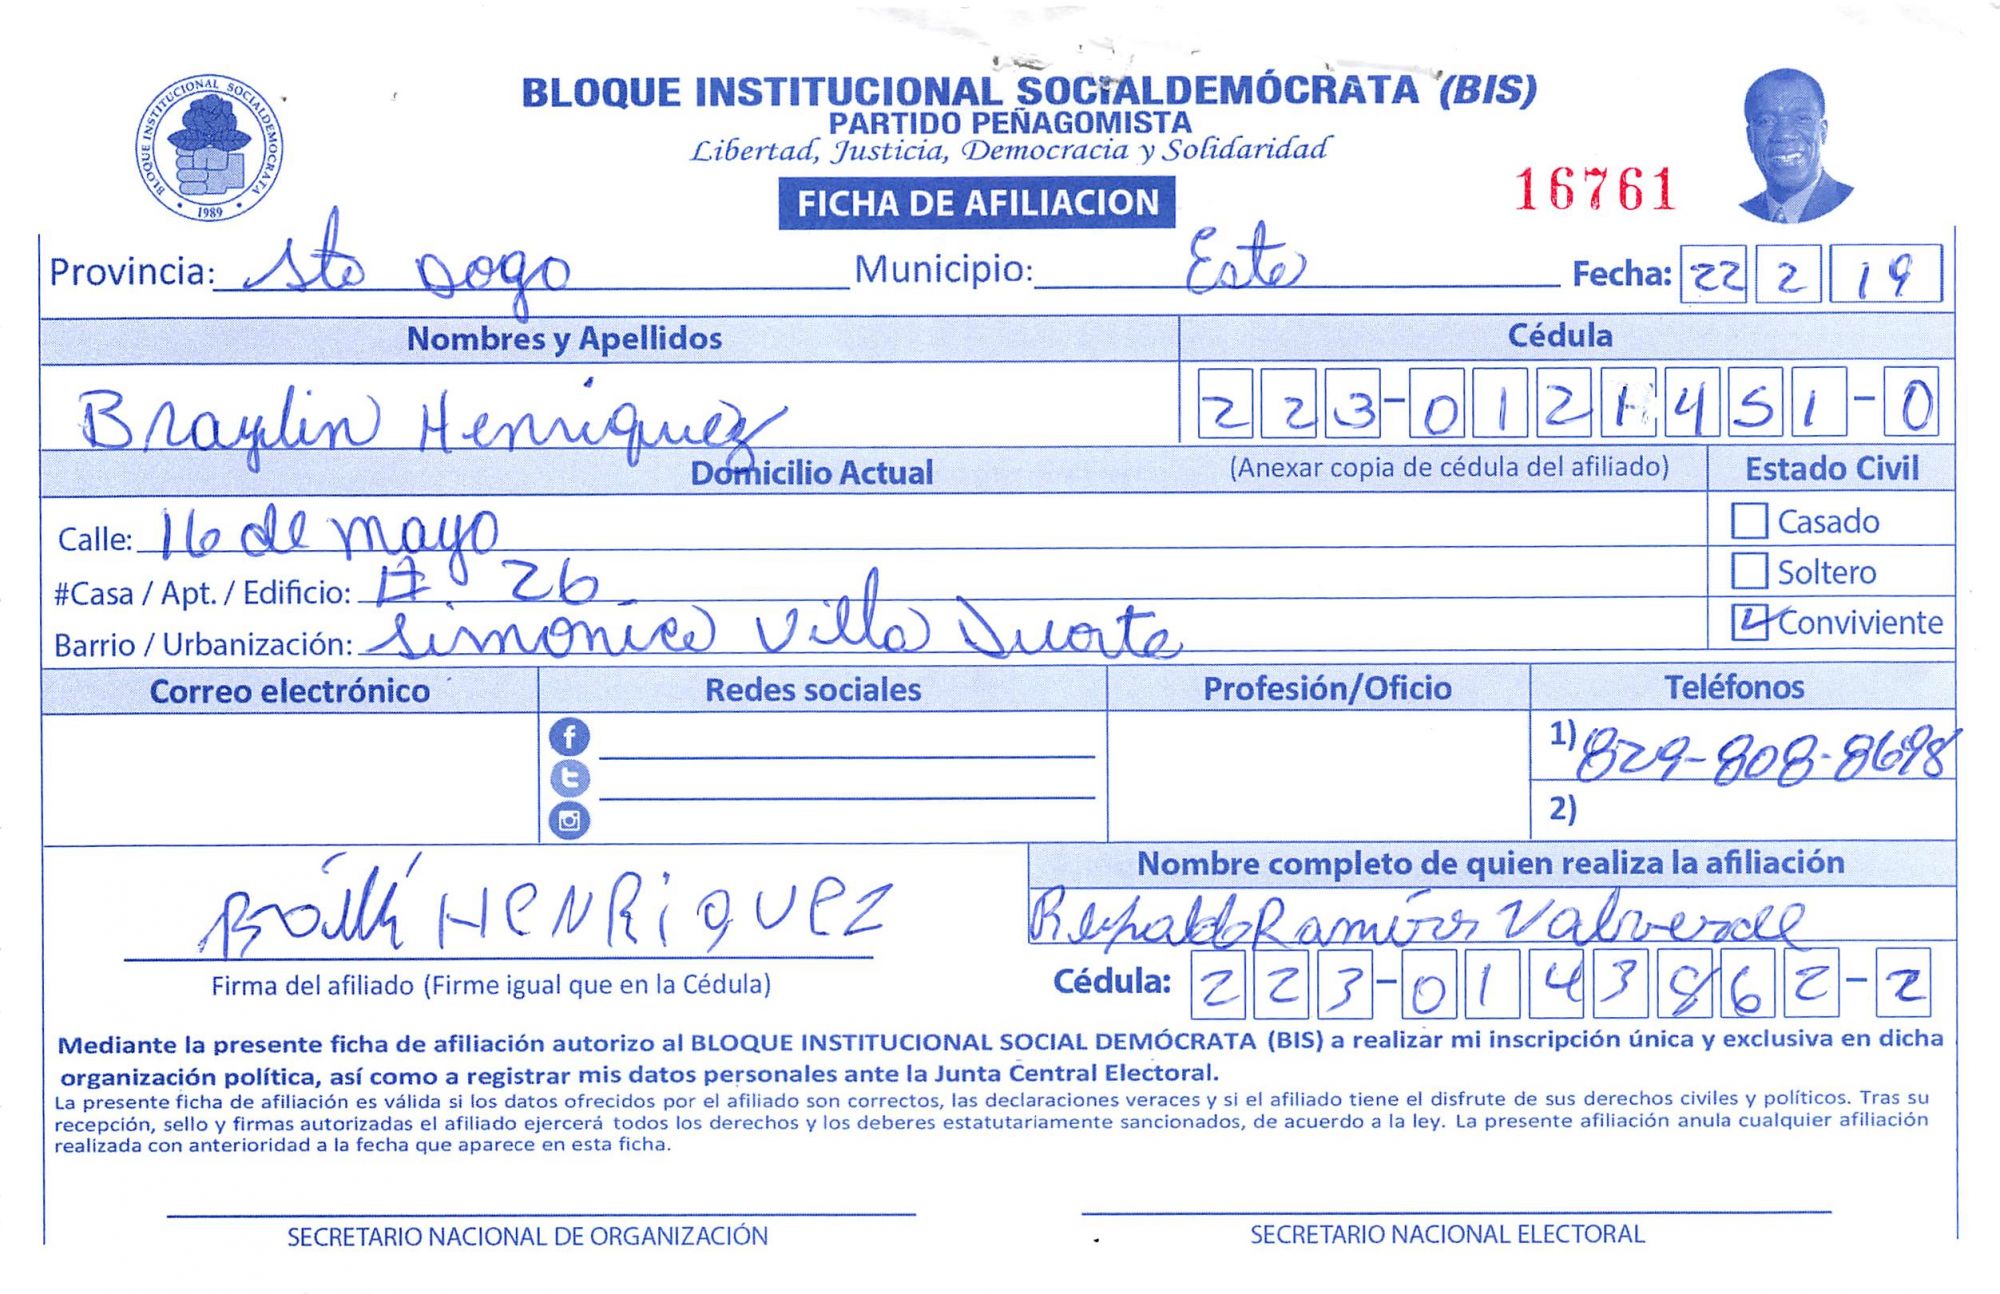 BLOQUE INSTITUCIONAL SOCIALDEMÓCRATA (BIS)
PARTIDO PEÑAGOMISTA
Libertad, Justicia, Democracia y Solidaridad
BLOQUE INSTITUCIONAL SOCIALDEMOCRATA
1989
FICHA DE AFILIACION
16761
Provincia: Sto Dogo Municipio: Este Fecha: 22 2 19
Nombres y Apellidos Cédula
Braylin Henriquez 223-0121451-0
Domicilio Actual (Anexar copia de cédula del afiliado) Estado Civil
Calle: 16 de mayo Casado
#Casa / Apt. / Edificio: # 26 Soltero
Barrio / Urbanización: Simonico Villa Duarte Conviviente
Correo electrónico Redes sociales Profesión/Oficio Teléfonos
1) 829-808-8698
2)
Nombre completo de quien realiza la afiliación
HENRiQUEZ Ramírez Valverde
Firma del afiliado (Firme igual que en la Cédula) Cédula: 223-0143862-2
Mediante la presente ficha de afiliación autorizo al BLOQUE INSTITUCIONAL SOCIAL DEMÓCRATA (BIS) a realizar mi inscripción única y exclusiva en dicha
organización política, así como a registrar mis datos personales ante la Junta Central Electoral.
La presente ficha de afiliación es válida si los datos ofrecidos por el afiliado son correctos, las declaraciones veraces y si el afiliado tiene el disfrute de sus derechos civiles y políticos. Tras su
recepción, sello y firmas autorizadas el afiliado ejercerá todos los derechos y los deberes estatutariamente sancionados, de acuerdo a la ley. La presente afiliación anula cualquier afiliación
realizada con anterioridad a la fecha que aparece en esta ficha.
SECRETARIO NACIONAL DE ORGANIZACIÓN SECRETARIO NACIONAL ELECTORAL